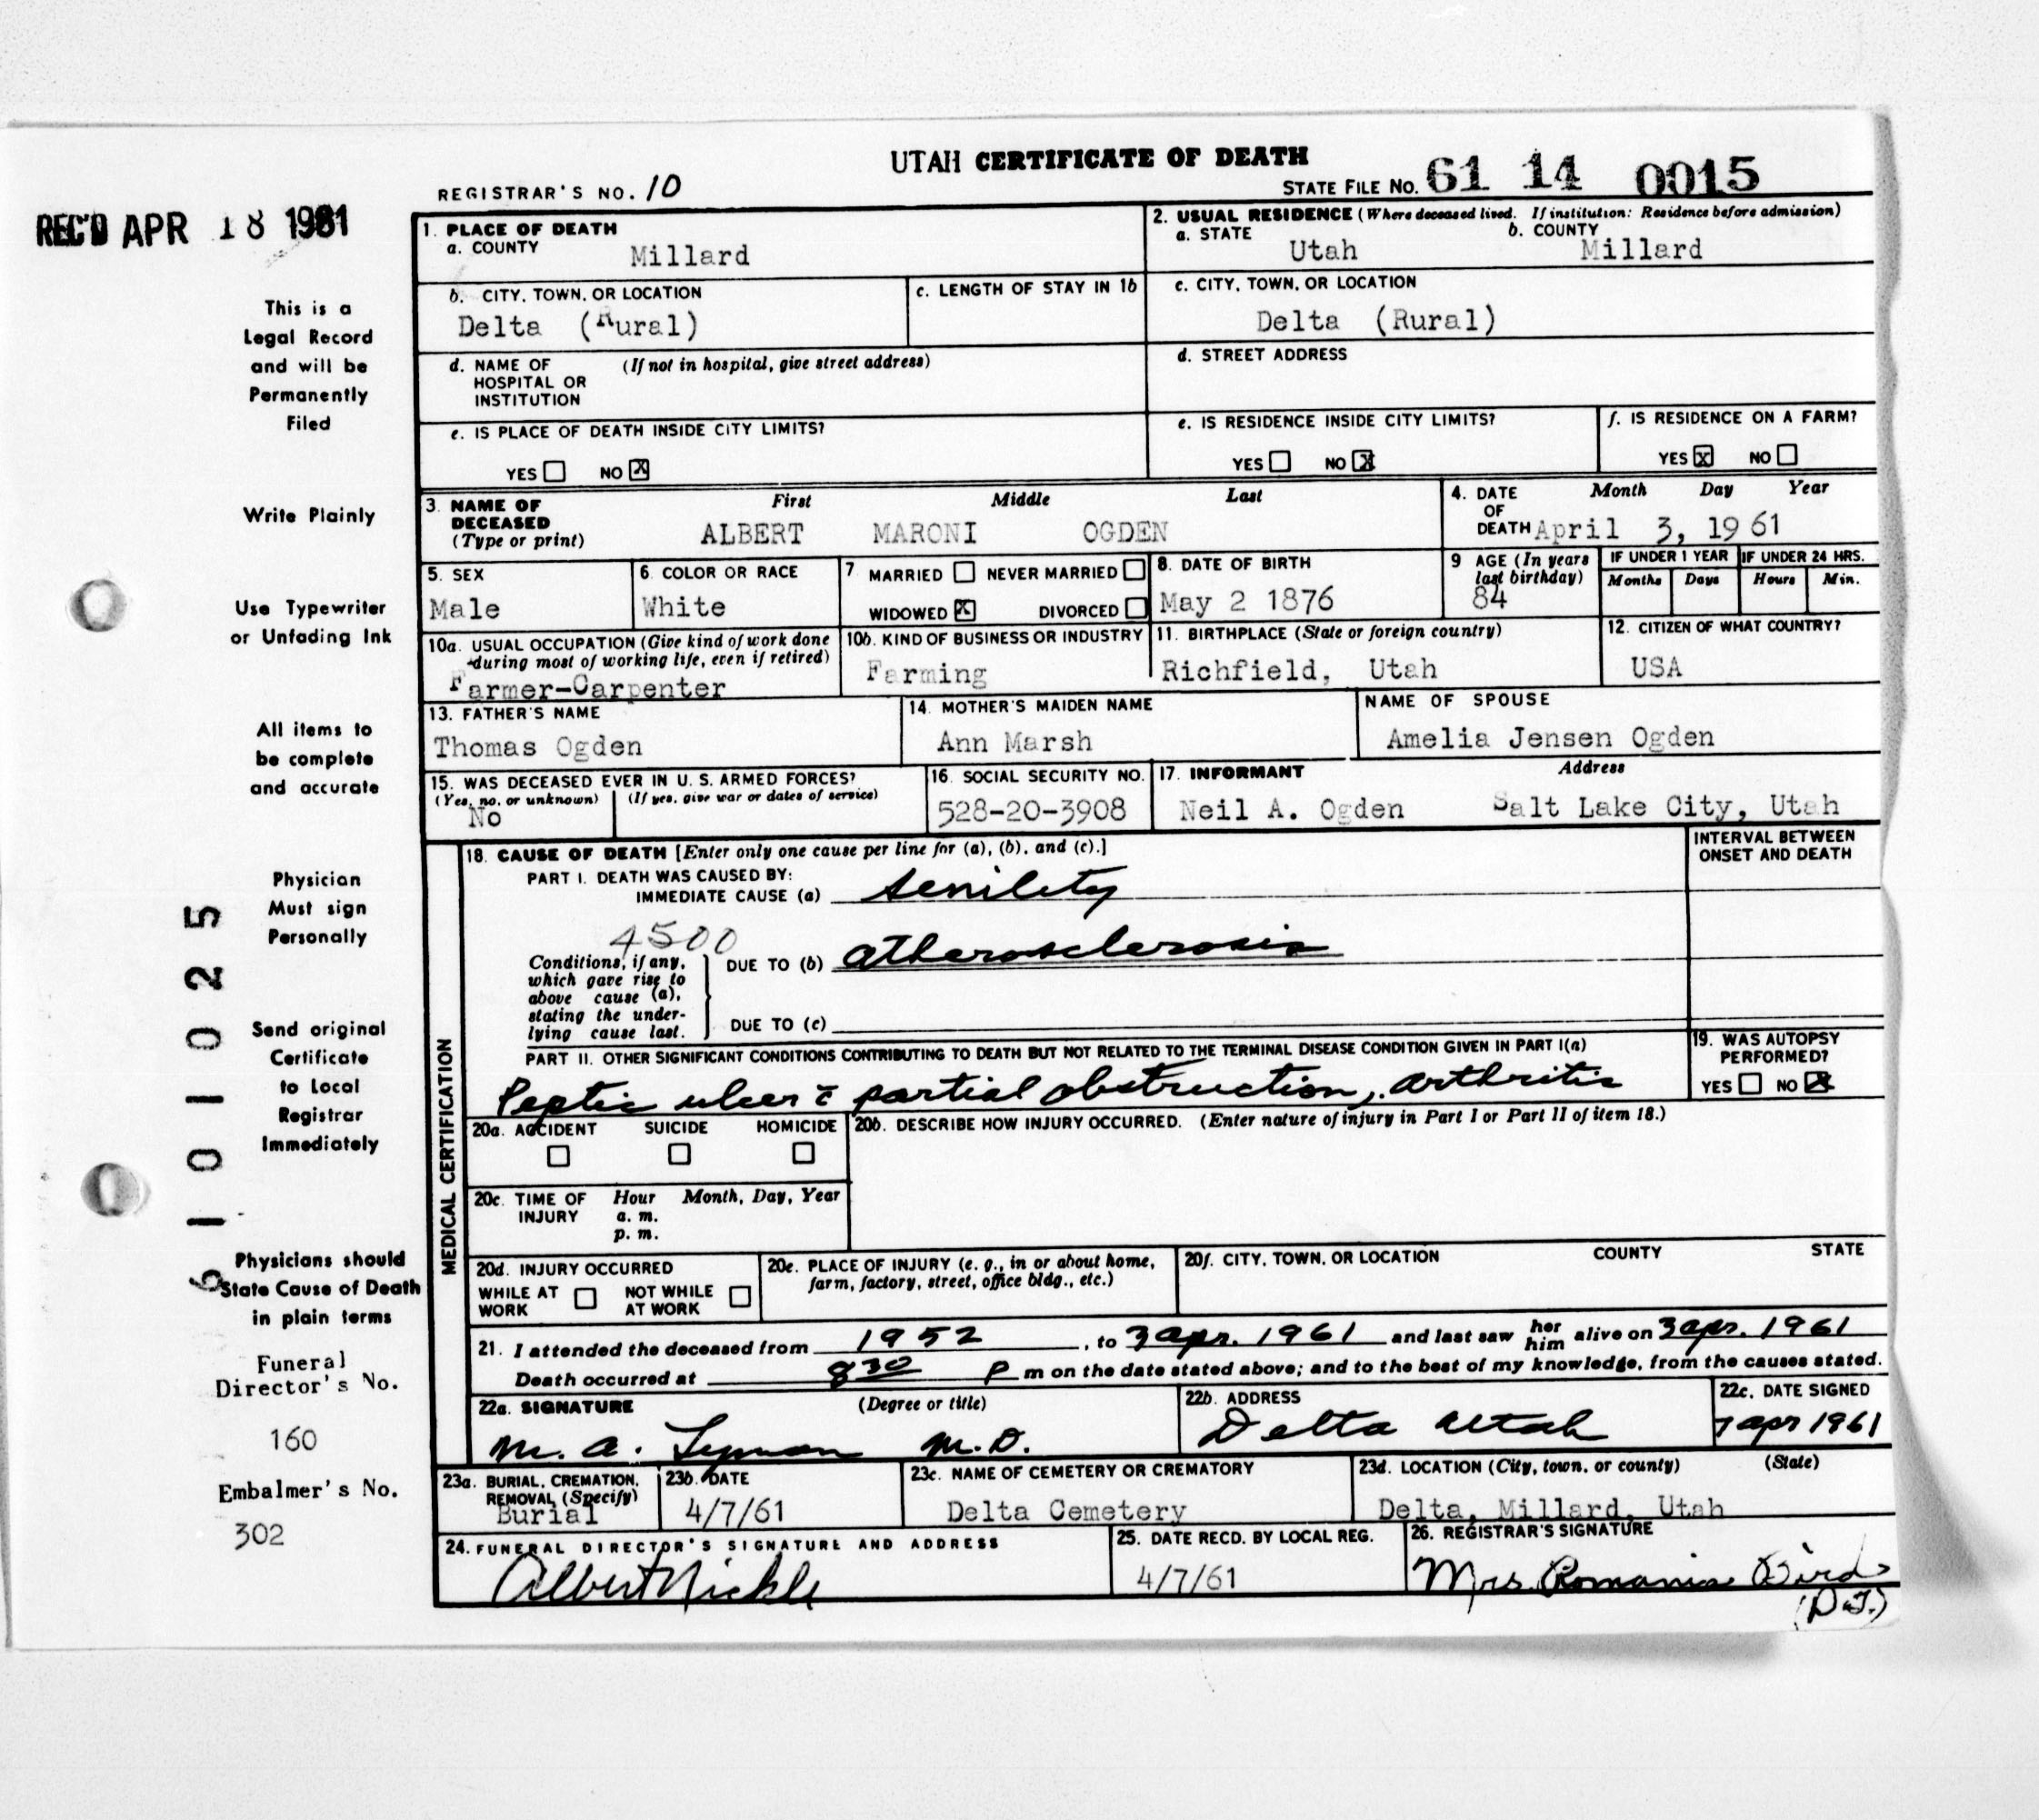 UTAH CERTIFICATE OF DEATH
REGISTRAR'S NO. 10
STATE FILE NO. 61 14 0015
REC'D APR 18 1961
This is a
Legal Record
and will be
Permanently
Filed
Write Plainly
Use Typewriter
or Unfading Ink
All items to
be complete
and accurate
Physician
Must sign
Personally
Send original
Certificate
to Local
Registrar
Immediately
Physicians should
State Cause of Death
in plain terms
Funeral
Director's No.
160
Embalmer's No.
302
6101025
1. PLACE OF DEATH
a. COUNTY Millard
2. USUAL RESIDENCE (Where deceased lived. If institution: Residence before admission)
a. STATE Utah b. COUNTY Millard
b. CITY, TOWN, OR LOCATION
Delta (Rural)
c. LENGTH OF STAY IN 1b
c. CITY, TOWN, OR LOCATION
Delta (Rural)
d. NAME OF (If not in hospital, give street address)
HOSPITAL OR
INSTITUTION
d. STREET ADDRESS
e. IS PLACE OF DEATH INSIDE CITY LIMITS?
YES NO X
e. IS RESIDENCE INSIDE CITY LIMITS?
YES NO X
f. IS RESIDENCE ON A FARM?
YES X NO
3. NAME OF DECEASED (Type or print) First Middle Last
ALBERT MARONI OGDEN
4. DATE OF DEATH Month Day Year
April 3, 1961
5. SEX
Male
6. COLOR OR RACE
White
7 MARRIED NEVER MARRIED
WIDOWED X DIVORCED
8. DATE OF BIRTH
May 2 1876
9 AGE (In years last birthday)
84
IF UNDER 1 YEAR IF UNDER 24 HRS.
Months Days Hours Min.
10a. USUAL OCCUPATION (Give kind of work done
during most of working life, even if retired)
Farmer-Carpenter
10b. KIND OF BUSINESS OR INDUSTRY
Farming
11. BIRTHPLACE (State or foreign country)
Richfield, Utah
12. CITIZEN OF WHAT COUNTRY?
USA
13. FATHER'S NAME
Thomas Ogden
14. MOTHER'S MAIDEN NAME
Ann Marsh
NAME OF SPOUSE
Amelia Jensen Ogden
15. WAS DECEASED EVER IN U. S. ARMED FORCES?
(Yes, no, or unknown) (If yes, give war or dates of service)
No
16. SOCIAL SECURITY NO.
528-20-3908
17. INFORMANT Address
Neil A. Ogden Salt Lake City, Utah
MEDICAL CERTIFICATION
18. CAUSE OF DEATH [Enter only one cause per line for (a), (b), and (c).]
INTERVAL BETWEEN
ONSET AND DEATH
PART I. DEATH WAS CAUSED BY:
IMMEDIATE CAUSE (a) senility
4500
Conditions, if any,
which gave rise to
above cause (a),
stating the under-
lying cause last.
DUE TO (b) atherosclerosis
DUE TO (c)
PART II. OTHER SIGNIFICANT CONDITIONS CONTRIBUTING TO DEATH BUT NOT RELATED TO THE TERMINAL DISEASE CONDITION GIVEN IN PART I(a)
Peptic ulcer c̄ partial obstruction, arthritis
19. WAS AUTOPSY
PERFORMED?
YES NO X
20a. ACCIDENT SUICIDE HOMICIDE
20b. DESCRIBE HOW INJURY OCCURRED. (Enter nature of injury in Part I or Part II of item 18.)
20c. TIME OF INJURY Hour Month, Day, Year
a. m.
p. m.
20d. INJURY OCCURRED
WHILE AT WORK NOT WHILE AT WORK
20e. PLACE OF INJURY (e. g., in or about home,
farm, factory, street, office bldg., etc.)
20f. CITY, TOWN, OR LOCATION COUNTY STATE
21. I attended the deceased from 1952, to 3 apr. 1961 and last saw her him alive on 3 apr. 1961
Death occurred at 8 30 P m on the date stated above; and to the best of my knowledge, from the causes stated.
22a. SIGNATURE (Degree or title)
M. A. Lyman M.D.
22b. ADDRESS
Delta Utah
22c. DATE SIGNED
7 apr 1961
23a. BURIAL, CREMATION,
REMOVAL (Specify)
Burial
23b. DATE
4/7/61
23c. NAME OF CEMETERY OR CREMATORY
Delta Cemetery
23d. LOCATION (City, town, or county) (State)
Delta, Millard, Utah
24. FUNERAL DIRECTOR'S SIGNATURE AND ADDRESS
Albert Nickle
25. DATE RECD. BY LOCAL REG.
4/7/61
26. REGISTRAR'S SIGNATURE
Mrs. Romania Bird